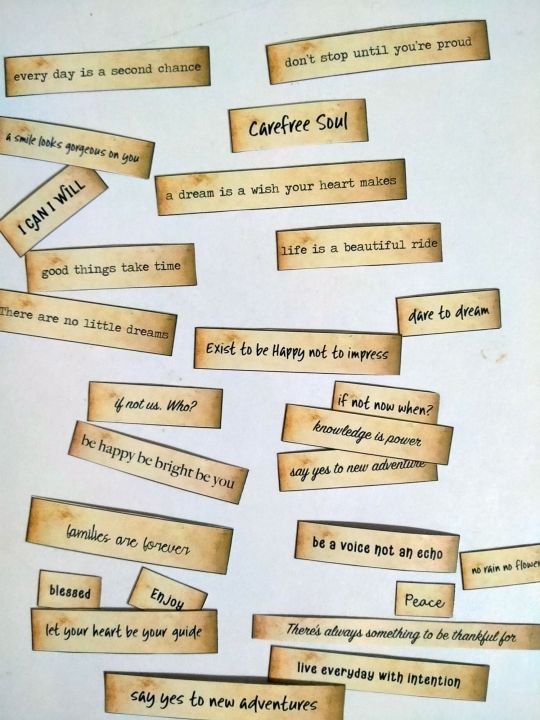 every day is a second chance
don't stop until you're proud
Carefree Soul
a smile looks gorgeous on you
a dream is a wish your heart makes
I CAN I WILL
life is a beautiful ride
good things take time
There are no little dreams
dare to dream
Exist to be Happy not to impress
if not us. Who?
if not now when?
knowledge is power
be happy be bright be you
say yes to new adventure
families are forever
be a voice not an echo
no rain no flower
blessed
Enjoy
Peace
let your heart be your guide
There's always something to be thankful for
live everyday with intention
say yes to new adventures